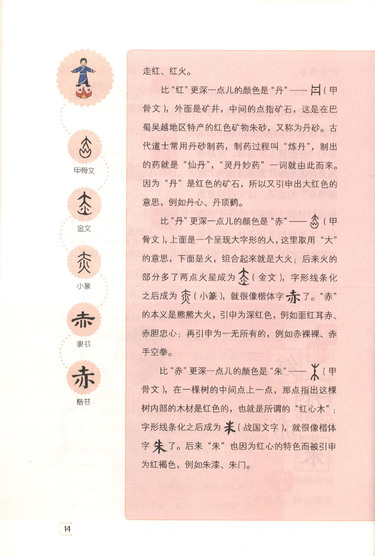 走红、红火。
比“红”更深一点儿的颜色是“丹”——（甲
骨文），外面是矿井，中间的点指矿石，这是在巴
蜀吴越地区特产的红色矿物朱砂，又称为丹砂。古
代道士常用丹砂制药，制药过程叫“炼丹”，制出
的药就是“仙丹”，“灵丹妙药”一词就由此而来。
因为“丹”是红色的矿石，所以又引申出大红色的
意思，例如丹心、丹顶鹤。
比“丹”更深一点儿的颜色是“赤”——（甲
骨文），上面是一个呈现大字形的人，这里取用“大”
的意思，下面是火，组合起来就是大火；后来火的
部分多了两点火星成为（金文），字形线条化
之后成为（小篆），就很像楷体字赤了。“赤”
的本义是熊熊大火，引申为深红色，例如面红耳赤、
赤胆忠心；再引申为一无所有的，例如赤裸裸、赤
手空拳。
比“赤”更深一点儿的颜色是“朱”——（甲
骨文），在一棵树的中间点上一点，那点指出这棵
树内部的木材是红色的，也就是所谓的“红心木”；
字形线条化之后成为（战国文字），就很像楷体
字朱了。后来“朱”也因为红心的特色而被引申
为红褐色，例如朱漆、朱门。
甲骨文
金文
小篆
赤
隶书
赤
楷书
14